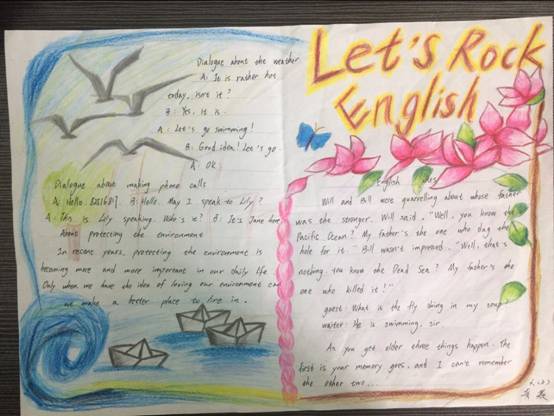 Let's Rock
English
Dialogue about the weather
A: It is rather hot
today, isn't it?
B: Yes, it is.
A: Let's go swimming!
B: Good idea! Let's go.
A: OK
Dialogue about making phone calls
A: Hello B: Hello. May I speak to Lily?
A: This is Lily speaking. Who's it? B: It's Jane here
About protecting the environment
In recent years, protecting the environment is
becoming more and more important in our daily life
Only when we have the idea of loving our environment can
we make a better place to live in.
English
Will and Bill were quarrelling about whose father
was the stronger. Will said, "Well, you know the
Pacific Ocean? My father's the one who dug the
hole for it." Bill wasn't impressed. "Well, that's
nothing. you know the Dead Sea? My father's the
one who killed it!"
guest: What is the fly doing in my soup
waiter: He is swimming, sir
As you get older three things happen. The
first is your memory goes, and I can't remember
the other two...